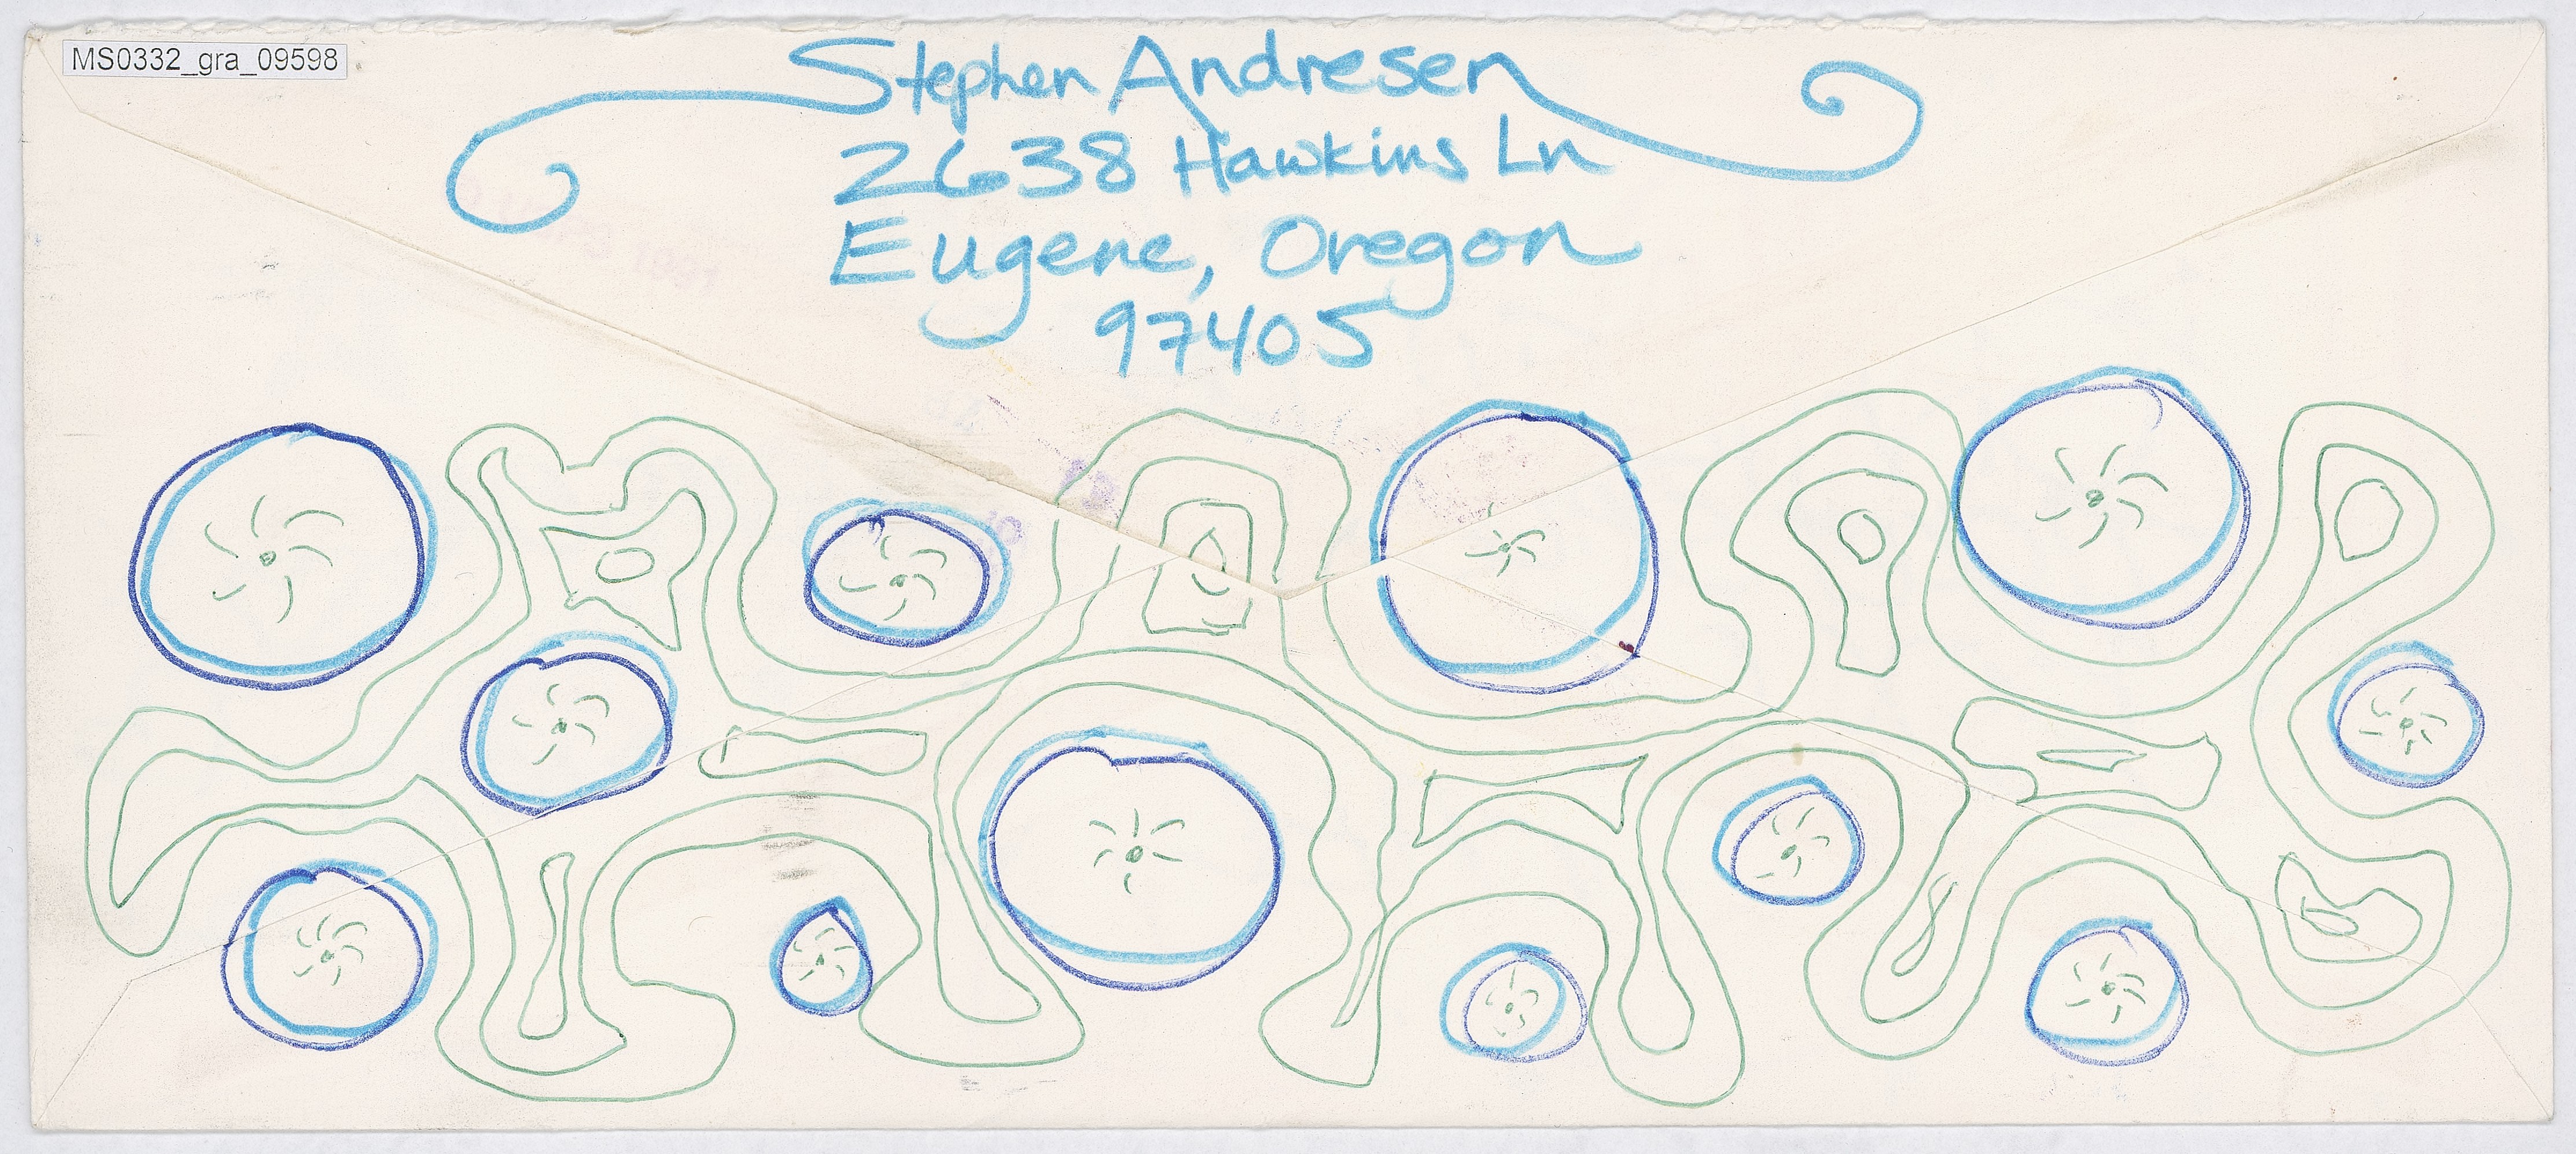 MS0332_gra_09598
Stephen Andresen
2638 Hawkins Ln
Eugene, Oregon
97405